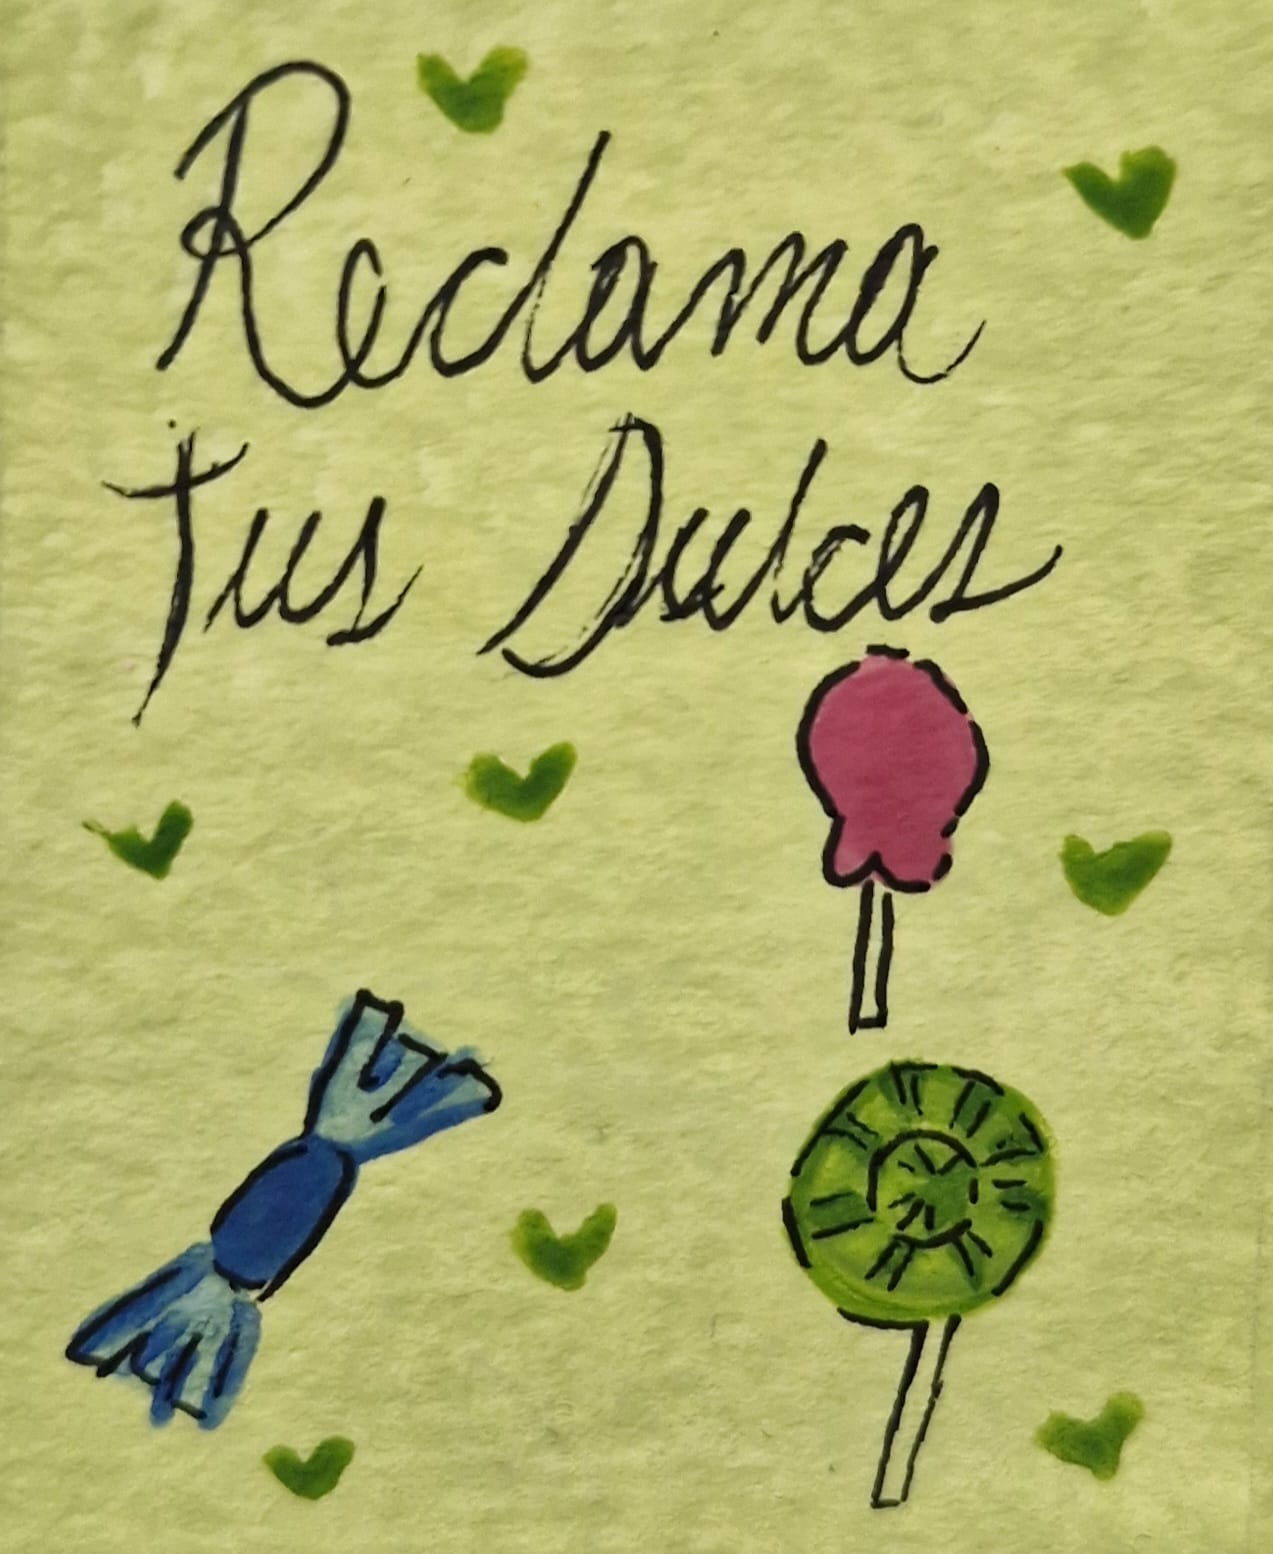 Reclama
Tus Dulces